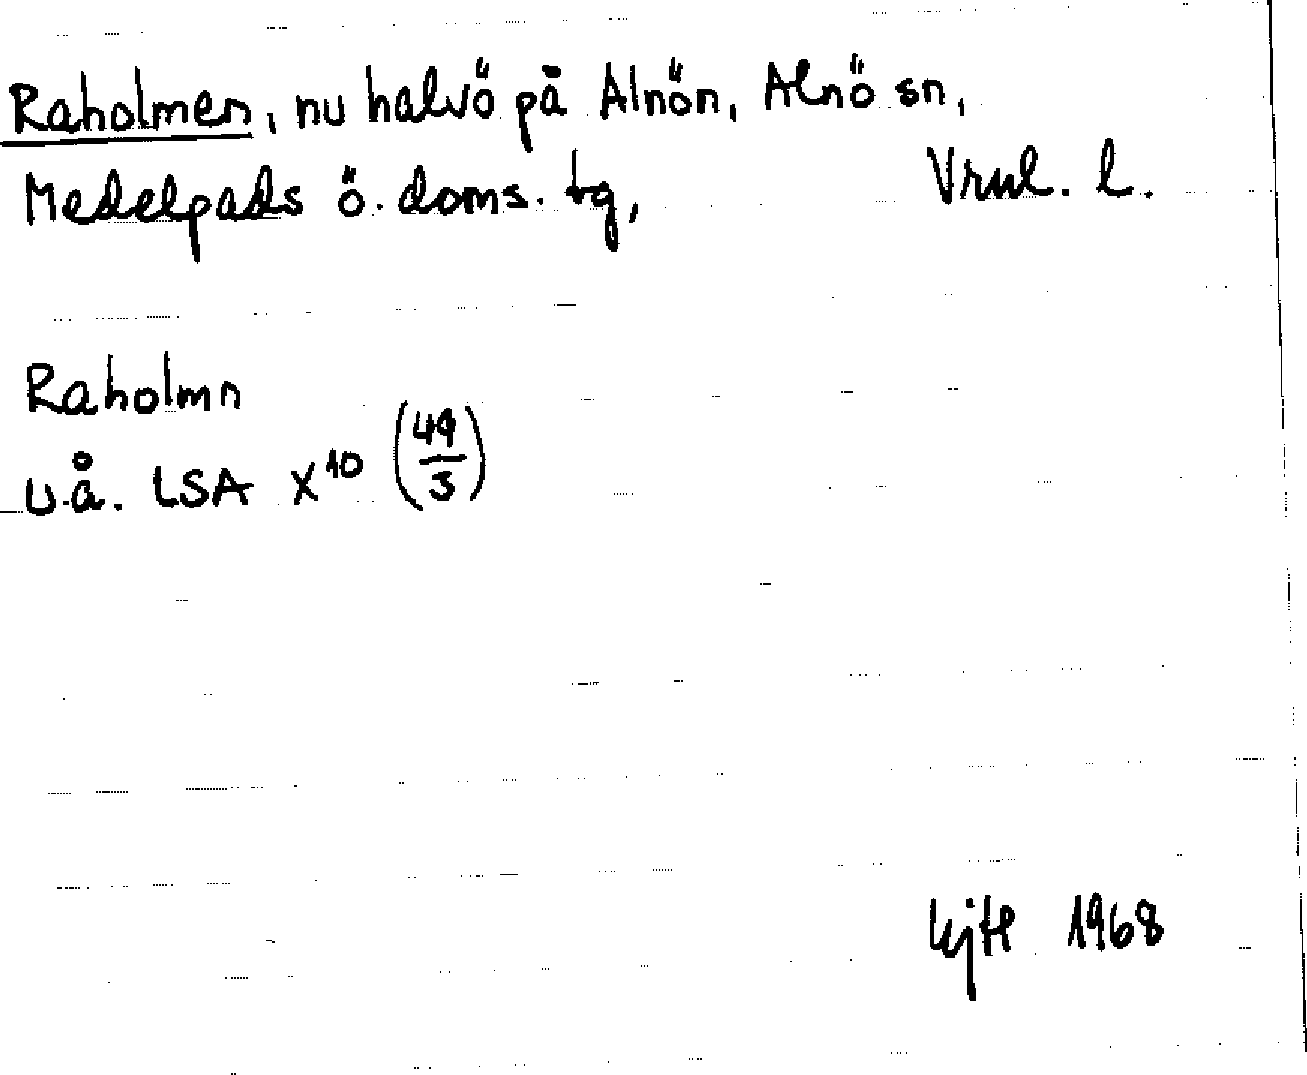 Raholmen, nu halvö på Alnön, Alnö sn,
Medelpads ö. doms. tg, Vrnl. l.
Raholmn
u.å. LSA X¹⁰ (49/3)
1968